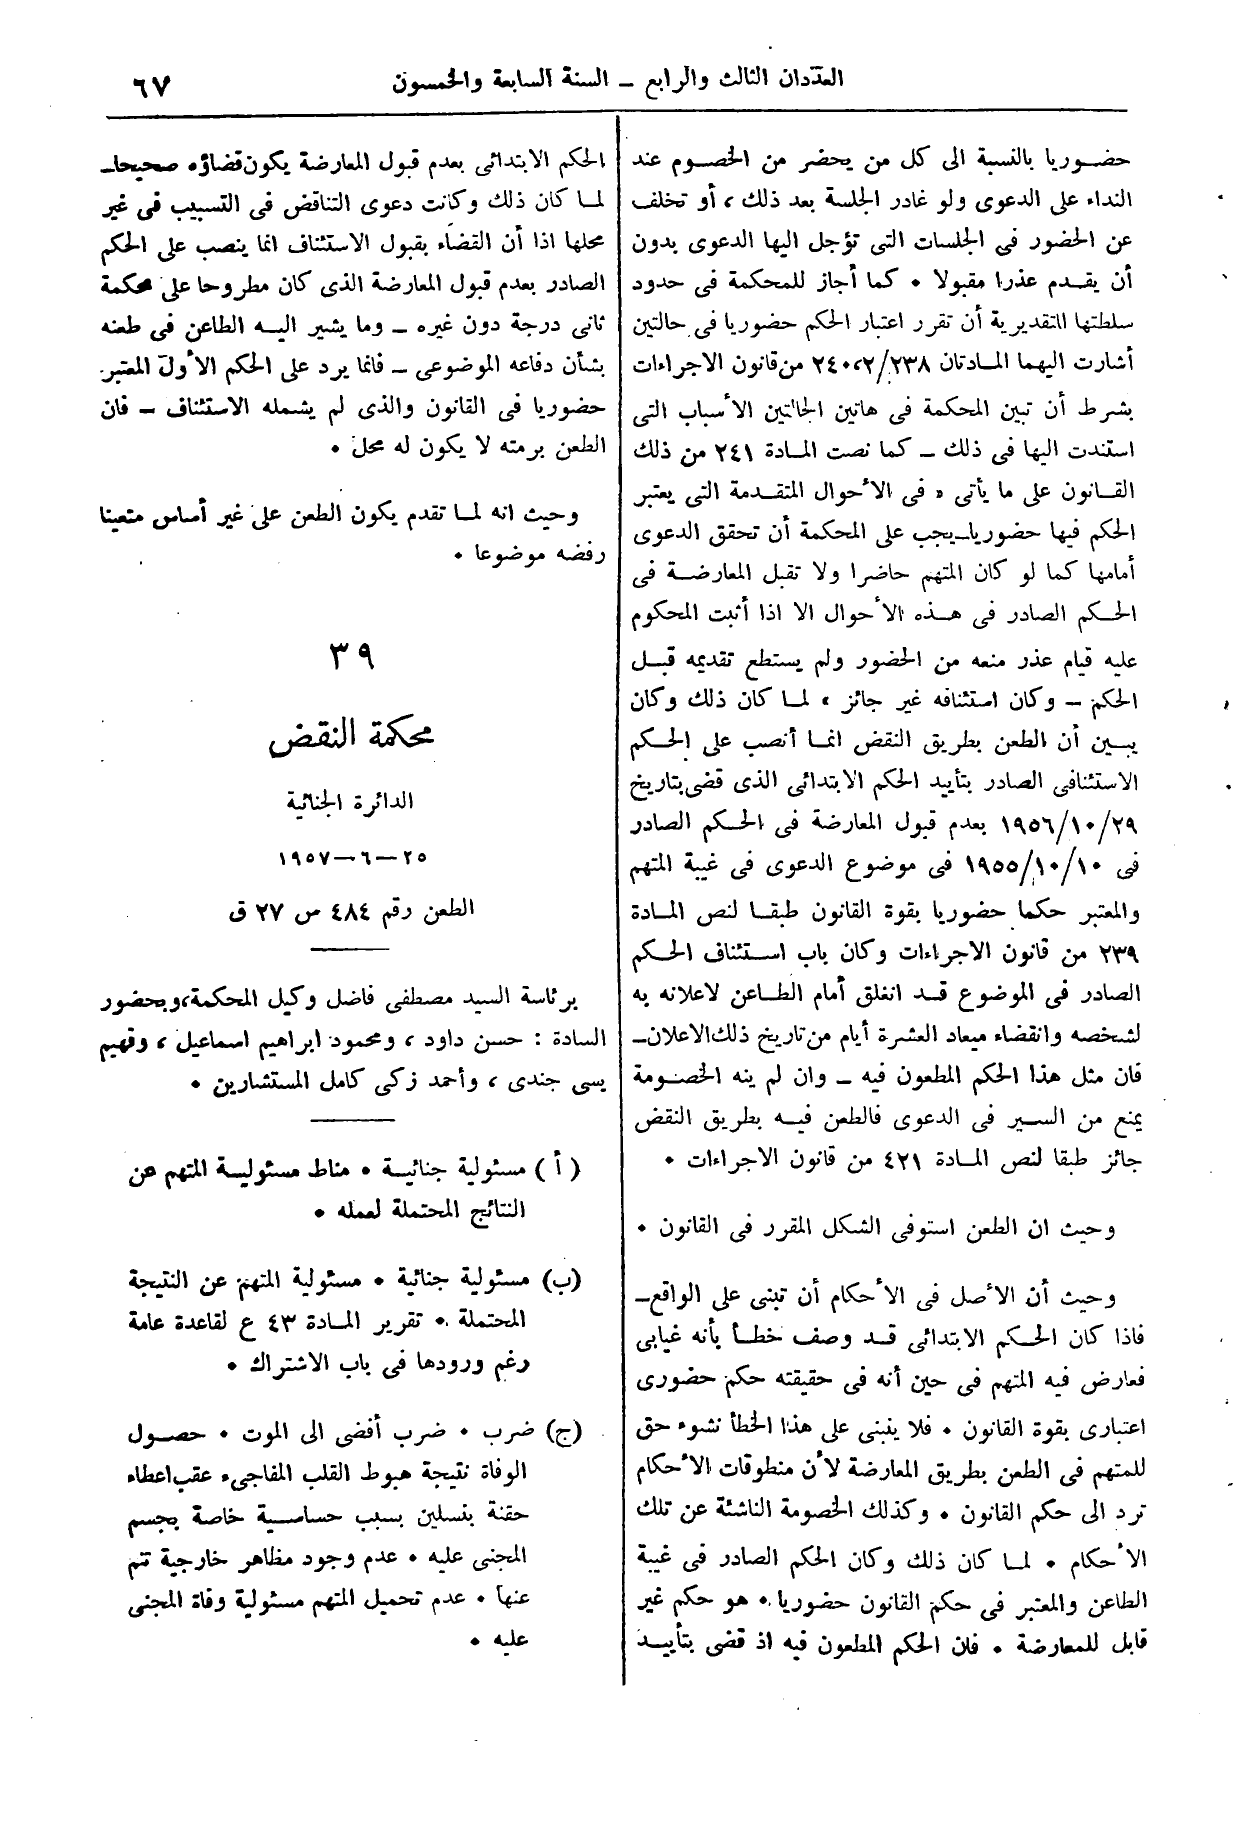 العددان الثالث والرابع – السنة السابعة والخمسون
٦٧
حضوريا بالنسبة الى كل من يحضر من الخصوم عند
النداء على الدعوى ولو غادر الجلسة بعد ذلك ، أو تخلف
عن الحضور فى الجلسات التى تؤجل اليها الدعوى بدون
أن يقدم عذرا مقبولا • كما أجاز للمحكمة فى حدود
سلطتها التقديرية أن تقرر اعتبار الحكم حضوريا فى حالتين
أشارت اليهما المادتان ٢/٢٣٨، ٢٤٠ من قانون الاجراءات
بشرط أن تبين المحكمة فى هاتين الحالتين الأسباب التى
استندت اليها فى ذلك – كما نصت المادة ٢٤١ من ذلك
القانون على ما يأتى « فى الأحوال المتقدمة التى يعتبر
الحكم فيها حضوريا – يجب على المحكمة أن تحقق الدعوى
أمامها كما لو كان المتهم حاضرا ولا تقبل المعارضة فى
الحكم الصادر فى هذه الأحوال الا اذا أثبت المحكوم
عليه قيام عذر منعه من الحضور ولم يستطع تقديمه قبل
الحكم – وكان استئنافه غير جائز » لما كان ذلك وكان
يبين أن الطعن بطريق النقض انما أنصب على الحكم
الاستئنافى الصادر بتأييد الحكم الابتدائى الذى قضى بتاريخ
١٩٥٦/١٠/٢٩ بعدم قبول المعارضة فى الحكم الصادر
فى ١٩٥٥/١٠/١٠ فى موضوع الدعوى فى غيبة المتهم
والمعتبر حكما حضوريا بقوة القانون طبقا لنص المادة
٢٣٩ من قانون الاجراءات وكان باب استئناف الحكم
الصادر فى الموضوع قد انغلق أمام الطاعن لاعلانه به
لشخصه وانقضاء ميعاد العشرة أيام من تاريخ ذلك الاعلان –
فان مثل هذا الحكم المطعون فيه – وان لم ينه الخصومة
يمنع من السير فى الدعوى فالطعن فيه بطريق النقض
جائز طبقا لنص المادة ٤٢١ من قانون الاجراءات •
وحيث ان الطعن استوفى الشكل المقرر فى القانون •
وحيث أن الأصل فى الأحكام أن تبنى على الواقع –
فاذا كان الحكم الابتدائى قد وصف خطأ بأنه غيابى
فعارض فيه المتهم فى حين أنه فى حقيقته حكم حضورى
اعتبارى بقوة القانون • فلا ينبنى على هذا الخطأ نشوء حق
للمتهم فى الطعن بطريق المعارضة لأن منطوقات الأحكام
ترد الى حكم القانون • وكذلك الخصومة الناشئة عن تلك
الأحكام • لما كان ذلك وكان الحكم الصادر فى غيبة
الطاعن والمعتبر فى حكم القانون حضوريا • هو حكم غير
قابل للمعارضة • فان الحكم المطعون فيه اذ قضى بتأييد
الحكم الابتدائى بعدم قبول المعارضة يكون قضاؤه صحيحا –
لما كان ذلك وكانت دعوى التناقض فى التسبيب فى غير
محلها اذا أن القضاء بقبول الاستئناف انما ينصب على الحكم
الصادر بعدم قبول المعارضة الذى كان مطروحا على محكمة
ثانى درجة دون غيره – وما يشير اليه الطاعن فى طعنه
بشأن دفاعه الموضوعى – فانما يرد على الحكم الأول المعتبر
حضوريا فى القانون والذى لم يشمله الاستئناف – فان
الطعن برمته لا يكون له محل •
وحيث انه لما تقدم يكون الطعن على غير أساس متعينا
رفضه موضوعا •
٣٩
محكمة النقض
الدائرة الجنائية
٢٥–٦–١٩٥٧
الطعن رقم ٤٨٤ س ٢٧ ق
برئاسة السيد مصطفى فاضل وكيل المحكمة، وبحضور
السادة : حسن داود ، ومحمود ابراهيم اسماعيل ، وفهيم
يسى جندى ، وأحمد زكى كامل المستشارين •
( أ ) مسئولية جنائية • مناط مسئولية المتهم عن
النتائج المحتملة لعمله •
(ب) مسئولية جنائية • مسئولية المتهم عن النتيجة
المحتملة • تقرير المادة ٤٣ ع لقاعدة عامة
رغم ورودها فى باب الاشتراك •
(ج) ضرب • ضرب أفضى الى الموت • حصول
الوفاة نتيجة هبوط القلب المفاجىء عقب اعطاء
حقنة بنسلين بسبب حساسية خاصة بجسم
المجنى عليه • عدم وجود مظاهر خارجية تنم
عنها • عدم تحميل المتهم مسئولية وفاة المجنى
عليه •